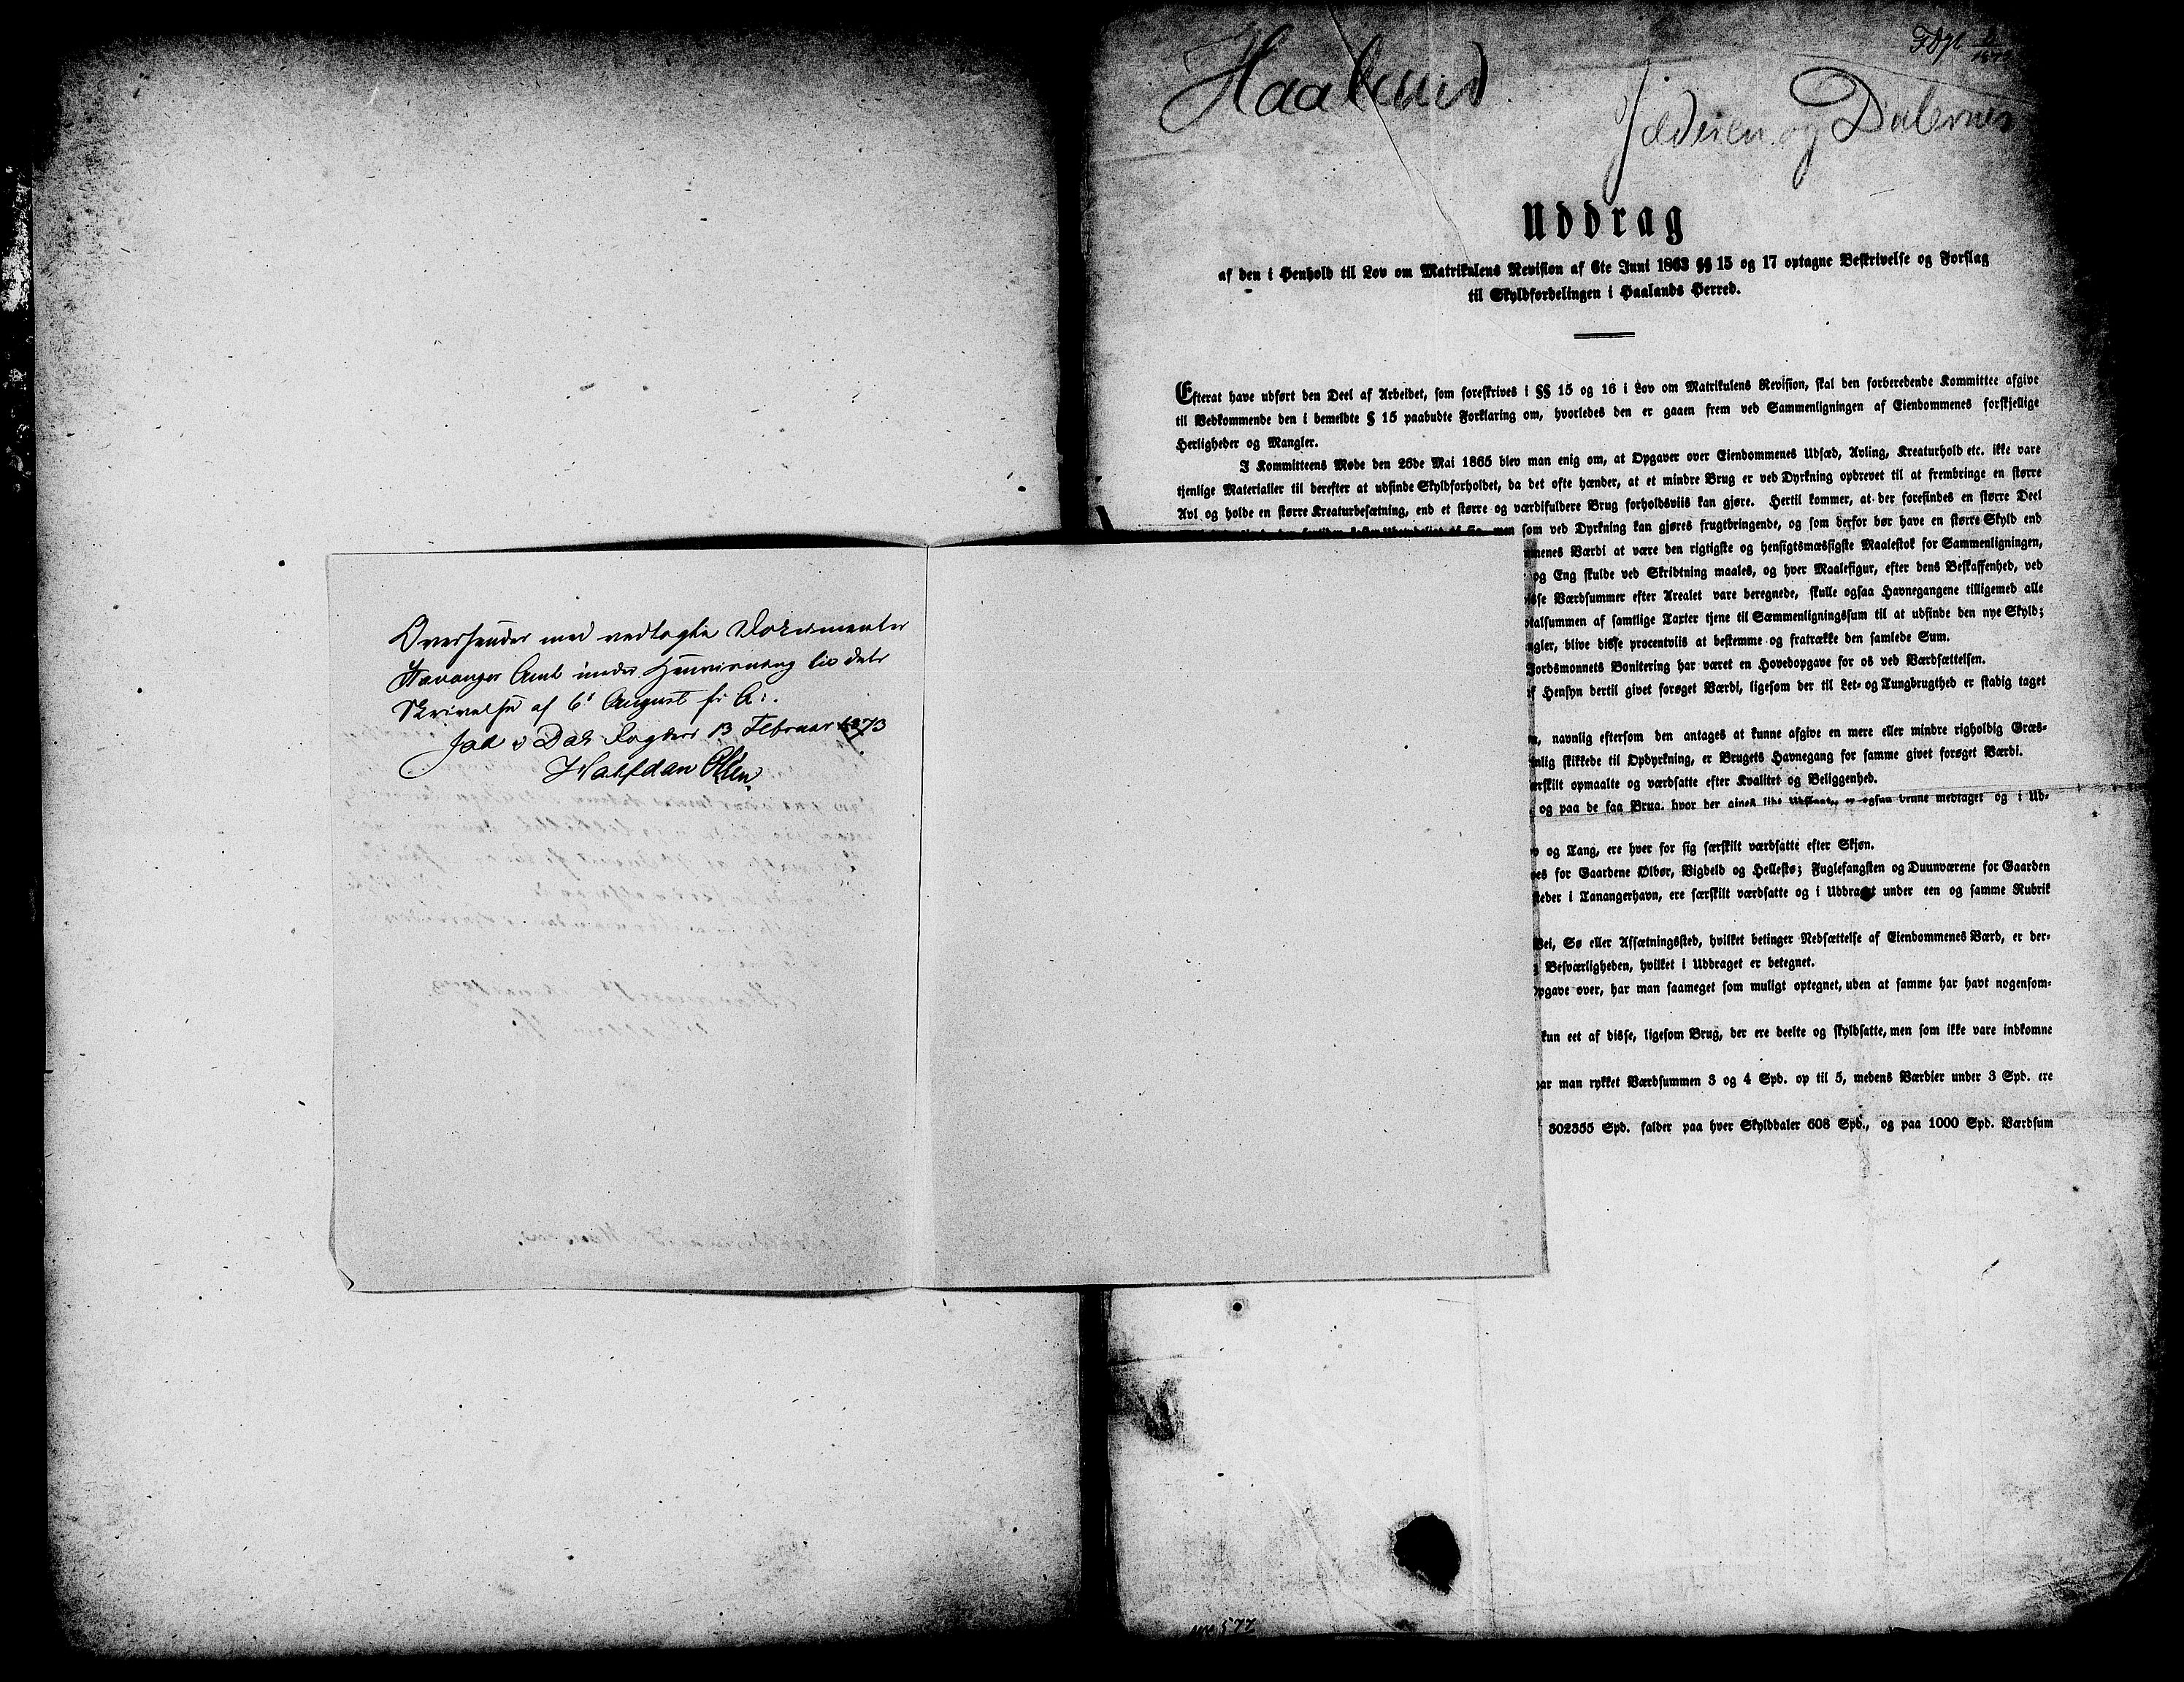 Haaland
Jæderen og Dalerne
Uddrag
af den i Henhold til Lov om Matrikulens Revision af 6te Juni 1863 §§ 15 og 17 optagne Beskrivelse og Forslag
til Skyldfordelingen i Haalands Herred.
Efterat have udført den Deel af Arbeidet, som foreskrives i §§ 15 og 16 i Lov om Matrikulens Revision, skal den forberedende Kommittee afgive
til Vedkommende den i bemeldte § 15 paabudte Forklaring om, hvorledes den er gaaen frem ved Sammenligningen af Eiendommenes forskjellige
Herligheder og Mangler.
I Kommitteens Møde den 26de Mai 1865 blev man enig om, at Opgaver over Eiendommenes Udsæd, Avling, Kreaturhold etc. ikke vare
tjenlige Materialier til derefter at udfinde Skyldforholdet, da det ofte hænder, at et mindre Brug er ved Dyrkning opdrevet til at frembringe en større
Avl og holde en større Kreaturbesætning, end et større og værdifuldere Brug forholdsviis kan gjøre. Hertil kommer, at der forefindes en større Deel
men som ved Dyrkning kan gjøres frugtbringende, og som derfor bør have en større Skyld end
menes Værdi at være den rigtigste og hensigtsmæssigste Maalestok for Sammenligningen,
og Eng skulde ved Skridtning maales, og hver Maalefigur, efter dens Beskaffenhed, ved
disse Værdsummer efter Arealet vare beregnede, skulle ogsaa Havnegangene tilligemed alle
talsummen af samtlige Taxter tjene til Sammenligningssum til at udfinde den nye Skyld;
ngler, blive disse procentviis at bestemme og fratrække den samlede Sum.
Jordsmonnets Bonitering har været en Hovedopgave for os ved Værdsættelsen.
f Hensyn dertil givet forøget Værdi, ligesom der til Let- og Tungbrugthed er stadig taget
n, navnlig eftersom den antages at kunne afgive en mere eller mindre righoldig Græs-
nlig skikkede til Opdyrkning, er Brugets Havnegang for samme givet forøget Værdi.
ærskilt opmaalte og værdsatte efter Kvalitet og Beliggenhed.
og paa de faa Brug, hvor der ogsaa denne medtaget og i Ud-
v og Tang, ere hver for sig særskilt værdsatte efter Skjøn.
es for Gaardene Ølbør, Vigdeld og Hellestø; Fuglefangsten og Duunværene for Gaarden
steder i Tanangerhavn, ere særskilt værdsatte og i Uddraget under een og samme Rubrik
Vei, Sø eller Afsætningssted, hvilket betinger Nedsættelse af Eiendommenes Værd, er der-
Besværligheden, hvilket i Uddraget er betegnet.
pgave over, har man saameget som muligt optegnet, uden at samme har havt nogensom-
kun eet af disse, ligesom Brug, der ere deelte og skyldsatte, men som ikke vare indkomne
har man rykket Værdsummen 3 og 4 Spd. op til 5, medens Værdier under 3 Spd. ere
302355 Spd. falder paa hver Skylddaler 608 Spd., og paa 1000 Spd. Værdsum
Oversendes med vedlagte Dokumenter
Stavanger Amt under Henviisning til dets
Skrivelse af 6te August f. A.
Jæd. & Dal. Fogderi 13 Februar 1873
Halfdan Olsen
577